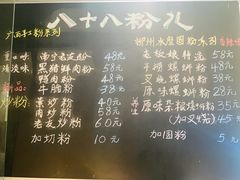 八十八粉儿
广西手工粉系列
南宁老友粉 48元
黑猪鲜肉粉 58元
鸭肉粉 48元
牛腩粉 58元
炒粉:素炒粉 40元
肉炒粉 58元
老友炒粉 60元
加切粉 10元
柳州水磨圆粉系列
老板娘精选 58元
干捞螺蛳粉 38元
叉烧螺蛳粉 38元
原味螺蛳粉 28元
原味 螺蛳粉 35元
(加叉烧) 45元
加圆粉 5元